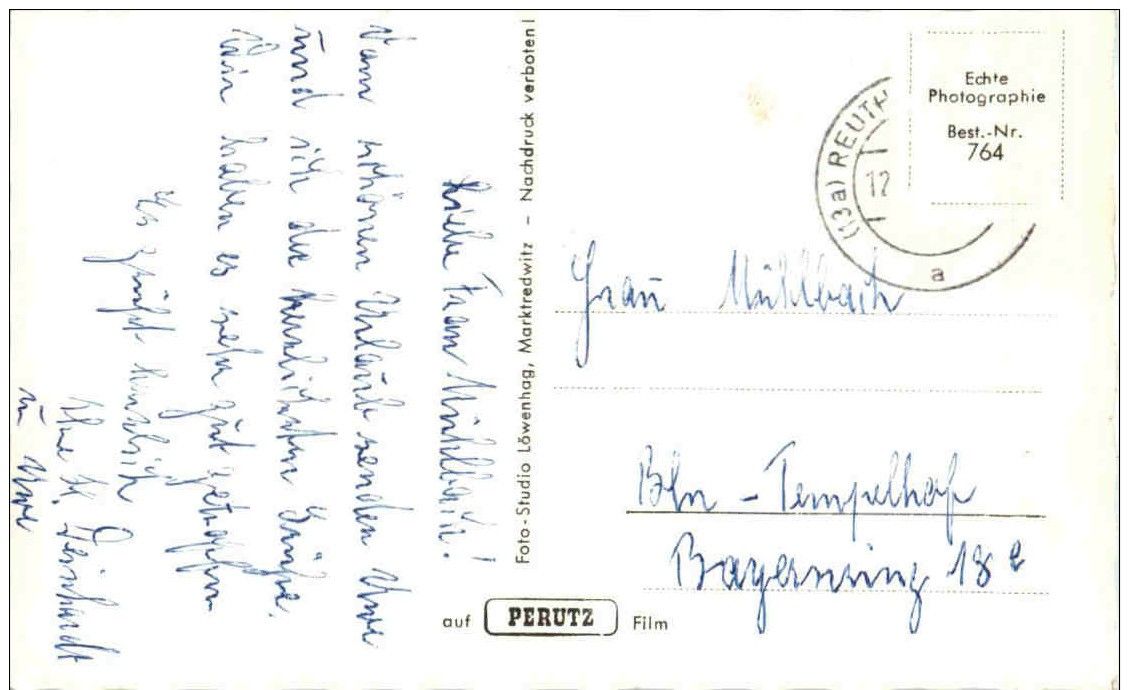 Liebe Frau Mühlbach!
Vom schönen Urlaub senden Uwe
und ich die herzlichsten Grüße.
Wir haben es sehr gut getroffen
Es grüßt herzlich
Ihre
u. Uwe
Foto-Studio Löwenhag, Marktredwitz – Nachdruck verboten!
Echte
Photographie
Best.-Nr.
764
(13a) REUTH
12
a
Frau Mühlbach
Bln - Tempelhof
Bayernring 18 e
auf PERUTZ Film